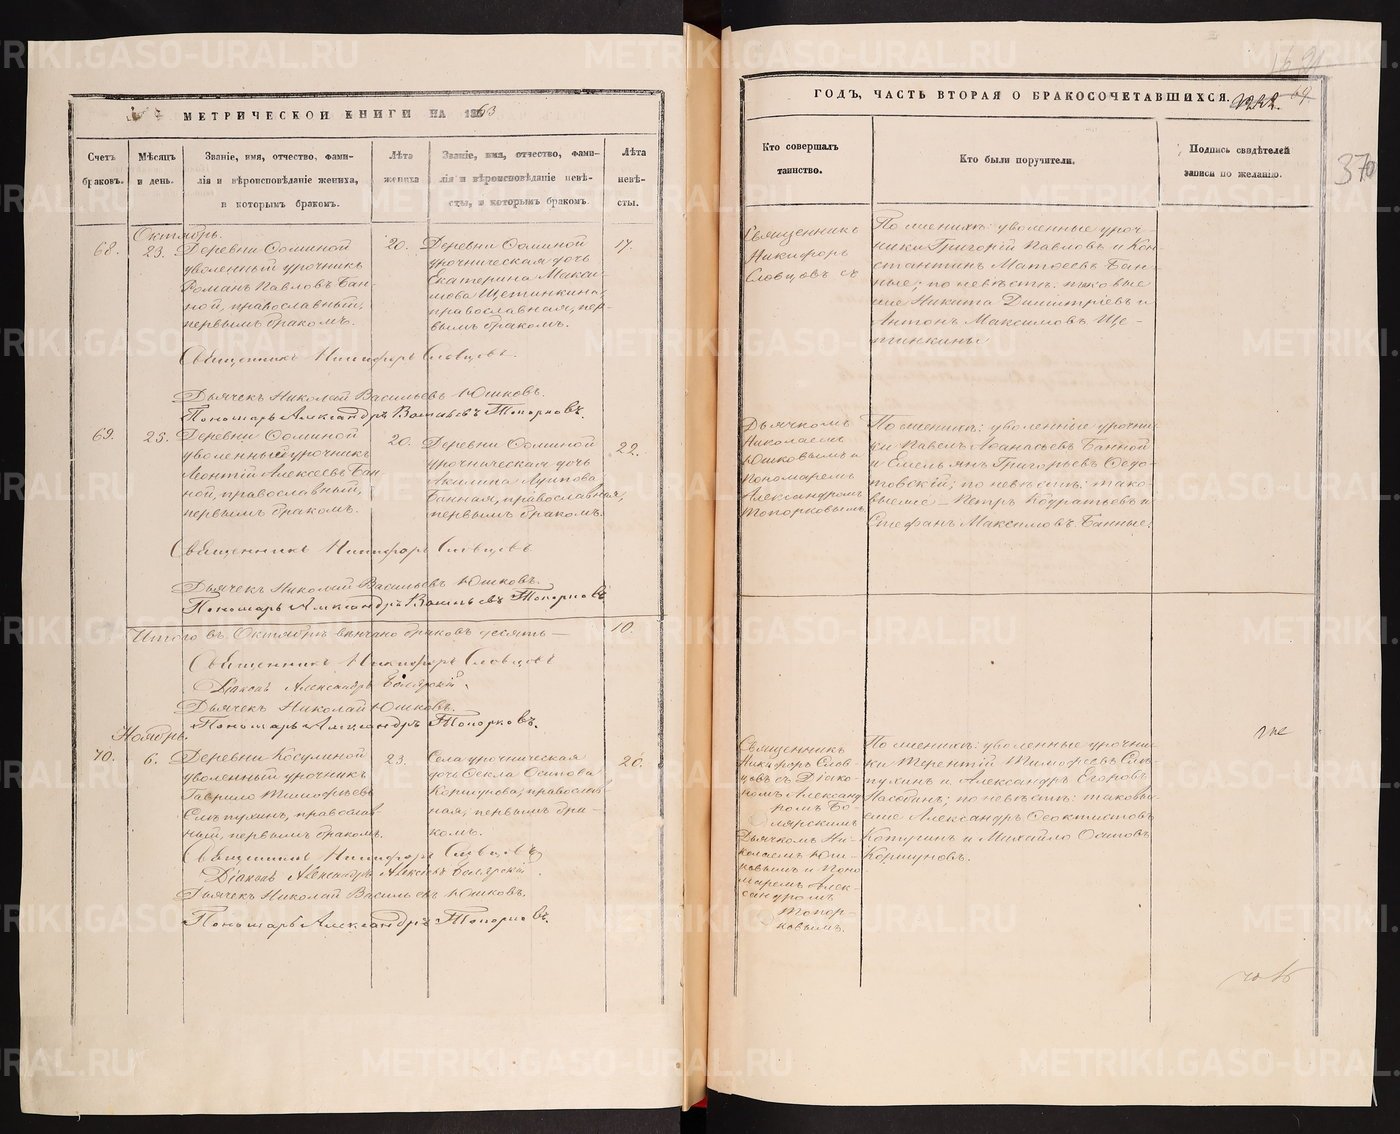 МЕТРИЧЕСКОЙ КНИГИ НА 1863
Счетъ браковъ.
Мѣсяцъ и день.
Званіе, имя, отчество, фами-
лія и вѣроисповѣданіе жениха,
и которымъ бракомъ.
Лѣта
жениха
Званіе, имя, отчество, фами-
лія и вѣроисповѣданіе невѣ-
сты, и которымъ бракомъ.
Лѣта
невѣ-
сты.
Октябрь.
68.
23.
Деревни Осминой
уволенный урочникъ
Романъ Павловъ Бан-
ной, православный,
первымъ бракомъ.
20.
Деревни Осминой
урочническая дочь
Екатерина Макси-
мова Щетинкина,
православная, пер-
вымъ бракомъ.
17.
Священникъ Никифоръ Словцовъ.
Дьячекъ Николай Васильевъ Юшковъ.
Пономарь Александръ Топорковъ.
69.
25.
Деревни Осминой
уволенный урочникъ
Леонтій Алексеевъ Бан-
ной, православный,
первымъ бракомъ.
20.
Деревни Осминой
урочническая дочь
Акилина
Банная, православная,
первымъ бракомъ.
22.
Священникъ Никифоръ Словцовъ
Дьячекъ Николай Васильевъ Юшковъ.
Пономарь Александръ Топорковъ
Итого въ Октябрѣ вѣнчано браковъ десять —
10.
Священникъ Никифоръ Словцовъ
Діаконъ Александръ Болярскій.
Дьячекъ Николай Юшковъ.
Пономарь Александръ Топорковъ.
Ноябрь.
70.
6.
Деревни Косулиной
уволенный урочникъ
Гаврило Тимофѣевъ
Слѣпухинъ, православ-
ный, первымъ бракомъ.
23.
Села урочническая
дочь Фекла Осипова
Коршунова, православ-
ная, первымъ бра-
комъ.
20.
Священникъ Никифоръ Словцовъ
Діаконъ Александръ Алексѣевъ Болярскій.
Дьячекъ Николай Васильевъ Юшковъ.
Пономарь Александръ Топорковъ.
ГОДЪ, ЧАСТЬ ВТОРАЯ О БРАКОСОЧЕТАВШИХСЯ.
370
Кто совершалъ
таинство.
Кто были поручители.
Подпись свидѣтелей
записи по желанію.
Священникъ
Никифоръ
Словцовъ съ
По женихѣ: уволенные уроч-
ники Григорій Павловъ и Кон-
стантинъ Матвеевъ Бан-
ные; по невѣстѣ: таковые
же Никита Димитріевъ и
Антонъ Максимовъ Ще-
тинкины.
Дьячкомъ
Николаемъ
Юшковымъ и
пономаремъ
Александромъ
Топорковымъ.
По женихѣ: уволенные урочни-
ки Павелъ Афанасьевъ Банной
и Емельянъ Григорьевъ Федо-
товскій; по невѣстѣ: тако-
вые же — Петръ Кодратьевъ и
Стефанъ Максимовъ Банные.
Священникъ
Никифоръ Слов-
цовъ съ Діако-
номъ Александ-
ромъ Бо-
лярскимъ
Дьячкомъ Ни-
колаемъ Юш-
ковымъ и Поно-
маремъ Алек-
сандромъ
Топор-
ковымъ.
По женихѣ: уволенные урочни-
ки Терентій Тимофеевъ Слѣ-
пухинъ и Александръ Егоровъ
по невѣстѣ: таковы-
еже Александръ Феоктистовъ
и Михайло Осиповъ
Коршуновъ.
METRIKI.GASO-URAL.RU